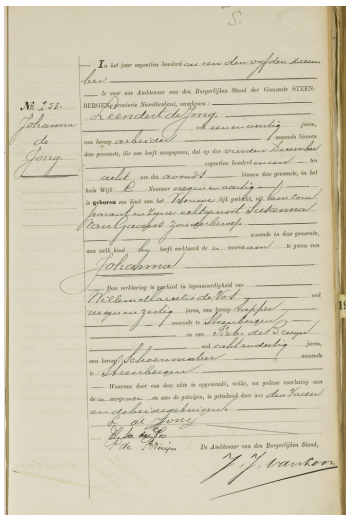 S.
In het jaar negentien honderd en een den vyfden Decem
ber
is voor ons Ambtenaar van den Burgerlijken Stand der Gemeente STEEN-
BERGEN, Provincie Noordbrabant, verschenen:
Leendert de Jong
No. 253.
Johanna
de
Jong.
eenenveertig jaren,
van beroep arbeider wonende binnen
deze gemeente, die ons heeft aangegeven, dat op den vierden December
negentien honderd een ten
acht ure des avonds binnen deze gemeente, in het
huis Wijk C Nummer negenenveertig
is geboren een kind van het Vrouwelijk geslacht, uit hem com
parant en zyne echtgenoot Susanna
van Gaans zonder beroep
wonende in deze gemeente,
aan welk kind hy heeft verklaard de voornaam te geven van
Johanna
Deze verklaring is geschied in tegenwoordigheid van
Willem de Vos oud
negenenzestig jaren, van beroep
wonende te Steenbergen
en van Pieter de Bruijn
oud achtendertig jaren,
van beroep Schoenmaker wonende
te Steenbergen
Waarvan door ons deze akte is opgemaakt, welke, na gedane voorlezing aan
de en aan de getuigen, is geteekend door ons den Vader
en de beide getuigen.
L de Jong
P de Bruijn
De Ambtenaar van den Burgerlijken Stand,
J. J. van Loon